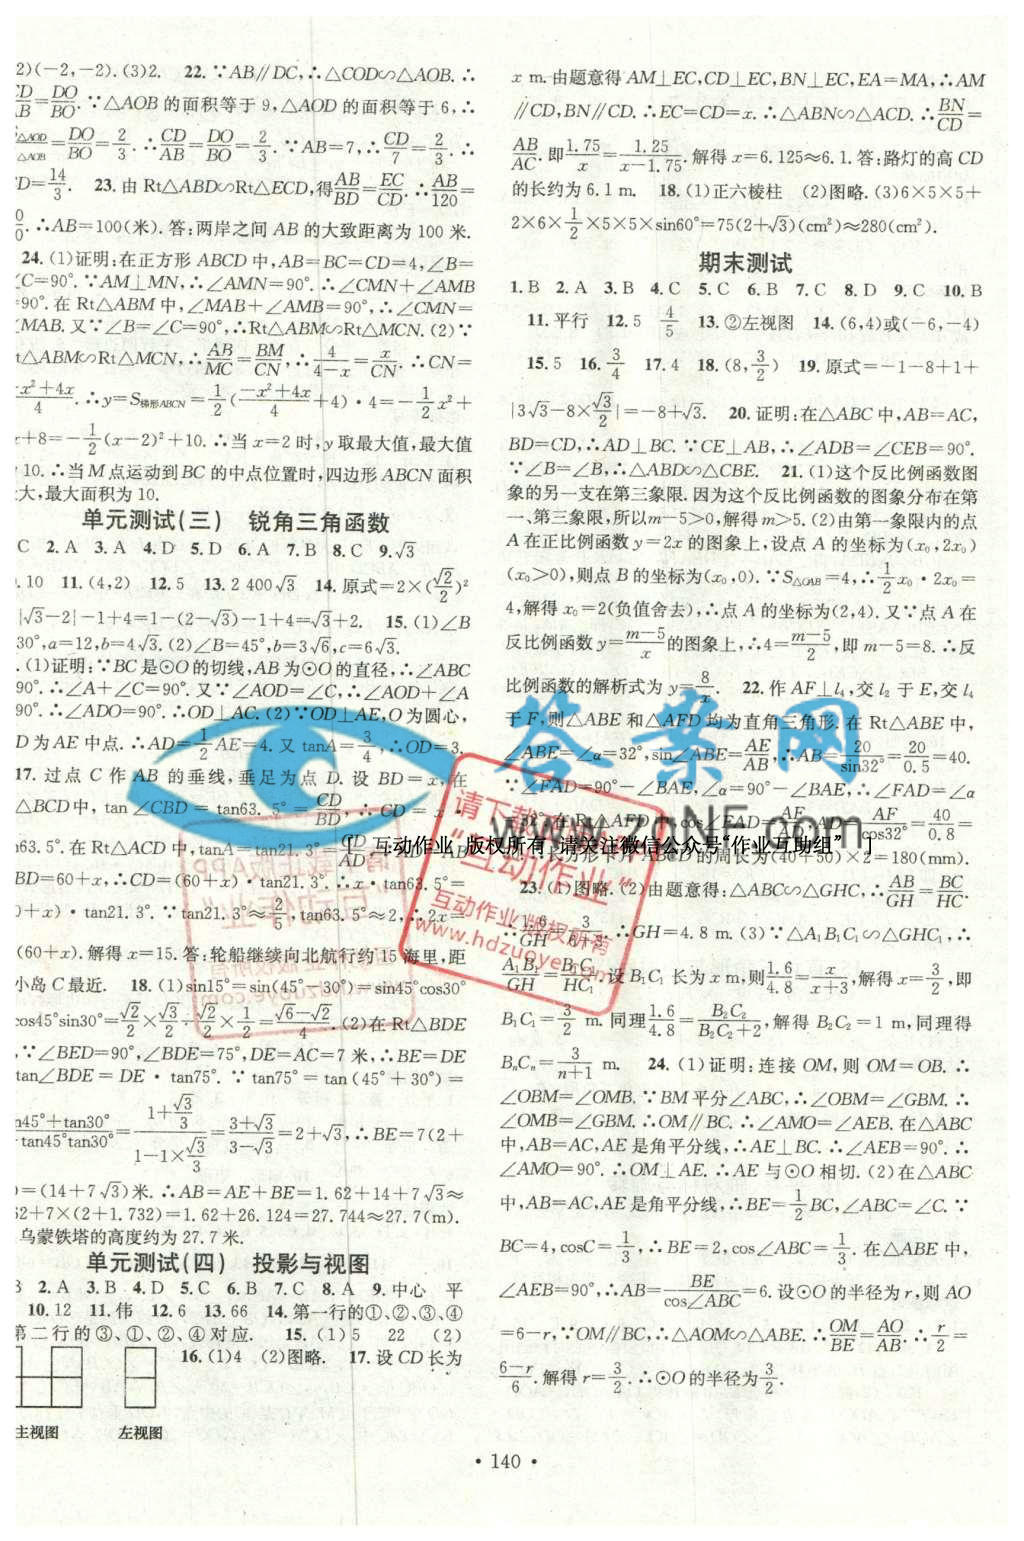 2)(-2,-2). (3)2. 22. ∵AB∥DC,∴△COD∽△AOB. ∴
CD/AB=DO/BO. ∵△AOB 的面积等于 9,△AOD 的面积等于 6,∴
S△AOD/S△AOB=DO/BO=2/3. ∴CD/AB=DO/BO=2/3. ∵AB=7,∴CD/7=2/3. ∴
CD=14/3. 23. 由 Rt△ABD∽Rt△ECD,得AB/BD=EC/CD. ∴AB/120=
∴AB=100(米). 答:两岸之间 AB 的大致距离为 100 米.
24. (1)证明:在正方形 ABCD 中,AB=BC=CD=4,∠B=
∠C=90°. ∵AM⊥MN,∴∠AMN=90°. ∴∠CMN+∠AMB
=90°. 在 Rt△ABM 中,∠MAB+∠AMB=90°,∴∠CMN=
∠MAB. 又∵∠B=∠C=90°,∴Rt△ABM∽Rt△MCN. (2)∵
Rt△ABM∽Rt△MCN,∴AB/MC=BM/CN,∴4/(4-x)=x/CN. ∴CN=
(-x²+4x)/4. ∴y=S梯形ABCN=1/2((-x²+4x)/4+4)·4=-1/2x²+
2x+8=-1/2(x-2)²+10. ∴当 x=2 时,y 取最大值,最大值
10. ∴当 M 点运动到 BC 的中点位置时,四边形 ABCN 面积
大,最大面积为 10.
单元测试(三) 锐角三角函数
C 2. A 3. A 4. D 5. D 6. A 7. B 8. C 9. √3
10 11. (4,2) 12. 5 13. 2 400√3 14. 原式=2×(√2/2)²
|√3-2|-1+4=1-(2-√3)-1+4=√3+2. 15. (1)∠B
30°,a=12,b=4√3. (2)∠B=45°,b=3√6,c=6√3.
(1)证明:∵BC 是⊙O 的切线,AB 为⊙O 的直径,∴∠ABC
90°. ∴∠A+∠C=90°. 又∵∠AOD=∠C,∴∠AOD+∠A
90°. ∴∠ADO=90°. ∴OD⊥AC. (2)∵OD⊥AE,O 为圆心,
D 为 AE 中点. ∴AD=1/2AE=4. 又 tanA=3/4,∴OD=3.
17. 过点 C 作 AB 的垂线,垂足为点 D. 设 BD=x,在
△BCD 中,tan∠CBD=tan63.5°=CD/BD,∴CD=x·
tan63.5°. 在 Rt△ACD 中,tanA=tan21.3°
BD=60+x,∴CD=(60+x)·tan21.3°. ∴x·tan63.5°=
(60+x)·tan21.3°. ∵tan21.3°≈2/5,tan63.5°≈2,∴2x=
(60+x). 解得 x=15. 答:轮船继续向北航行约 15 海里,距
小岛 C 最近. 18. (1)sin15°=sin(45°-30°)=sin45°cos30°
cos45°sin30°=√2/2×√3/2-√2/2×1/2=(√6-√2)/4. (2)在 Rt△BDE
∵∠BED=90°,∠BDE=75°,DE=AC=7 米,∴BE=DE
tan∠BDE=DE·tan75°. ∵tan75°=tan(45°+30°)=
(tan45°+tan30°)/(1-tan45°tan30°)=(1+√3/3)/(1-1×√3/3)=(3+√3)/(3-√3)=2+√3,∴BE=7(2+
=(14+7√3)米. ∴AB=AE+BE=1.62+14+7√3≈
62+7×(2+1.732)=1.62+26.124=27.744≈27.7(m).
乌蒙铁塔的高度约为 27.7 米.
单元测试(四) 投影与视图
B 2. A 3. B 4. D 5. C 6. B 7. C 8. A 9. 中心 平
10. 12 11. 伟 12. 6 13. 66 14. 第一行的①、②、③、④
第二行的③、①、②、④对应. 15. (1)5 22 (2)
16. (1)4 (2)图略. 17. 设 CD 长为
主视图 左视图
x m. 由题意得 AM⊥EC,CD⊥EC,BN⊥EC,EA=MA,∴AM
∥CD,BN∥CD. ∴EC=CD=x. ∴△ABN∽△ACD. ∴BN/CD=
AB/AC. 即1.75/x=1.25/(x-1.75). 解得 x=6.125≈6.1. 答:路灯的高 CD
的长约为 6.1 m. 18. (1)正六棱柱 (2)图略. (3)6×5×5+
2×6×1/2×5×5×sin60°=75(2+√3)(cm²)≈280(cm²).
期末测试
1. B 2. A 3. B 4. C 5. C 6. B 7. C 8. D 9. C 10. B
11. 平行 12. 5 4/5 13. ②左视图 14. (6,4)或(-6,-4)
15. 5 16. 3/4 17. 4 18. (8,3/2) 19. 原式=-1-8+1+
|3√3-8×√3/2|=-8+√3. 20. 证明:在△ABC 中,AB=AC,
BD=CD,∴AD⊥BC. ∵CE⊥AB,∴∠ADB=∠CEB=90°.
∵∠B=∠B,∴△ABD∽△CBE. 21. (1)这个反比例函数图
象的另一支在第三象限. 因为这个反比例函数的图象分布在第
一、第三象限,所以 m-5>0,解得 m>5. (2)由第一象限内的点
A 在正比例函数 y=2x 的图象上,设点 A 的坐标为(x₀,2x₀)
(x₀>0),则点 B 的坐标为(x₀,0). ∵S△OAB=4,∴1/2x₀·2x₀=
4,解得 x₀=2(负值舍去),∴点 A 的坐标为(2,4). 又∵点 A 在
反比例函数 y=(m-5)/x的图象上,∴4=(m-5)/2,即 m-5=8. ∴反
比例函数的解析式为 y=8/x. 22. 作 AF⊥l₄,交 l₂ 于 E,交 l₄
于 F,则△ABE 和△AFD 均为直角三角形. 在 Rt△ABE 中,
∠ABE=∠α=32°,sin∠ABE=AE/AB,∴AB=20/sin32°=20/0.5=40.
∵∠FAD=90°-∠BAE,∠α=90°-∠BAE,∴∠FAD=∠α
=32°. 在 Rt△AFD 中,cos∠FAD=AF/AD,AD=AF/cos32°=40/0.8=
50. ∴长方形卡片 ABCD 的周长为(40+50)×2=180(mm).
23. (1)图略. (2)由题意得:△ABC∽△GHC,∴AB/GH=BC/HC.
∴1.6/GH=3/(6+3). ∴GH=4.8 m. (3)∵△A₁B₁C₁∽△GHC₁,∴
A₁B₁/GH=B₁C₁/HC₁. 设 B₁C₁ 长为 x m,则1.6/4.8=x/(x+3),解得 x=3/2,即
B₁C₁=3/2 m. 同理1.6/4.8=B₂C₂/(B₂C₂+2),解得 B₂C₂=1 m,同理得
BₙCₙ=3/(n+1) m. 24. (1)证明:连接 OM,则 OM=OB. ∴
∠OBM=∠OMB. ∵BM 平分∠ABC,∴∠OBM=∠GBM. ∴
∠OMB=∠GBM. ∴OM∥BC. ∴∠AMO=∠AEB. 在△ABC
中,AB=AC,AE 是角平分线,∴AE⊥BC. ∴∠AEB=90°. ∴
∠AMO=90°. ∴OM⊥AE. ∴AE 与⊙O 相切. (2)在△ABC
中,AB=AC,AE 是角平分线,∴BE=1/2BC,∠ABC=∠C. ∵
BC=4,cosC=1/3,∴BE=2,cos∠ABC=1/3. 在△ABE 中,
∠AEB=90°,∴AB=BE/cos∠ABC=6. 设⊙O 的半径为 r,则 AO
=6-r,∵OM∥BC,∴△AOM∽△ABE. ∴OM/BE=AO/AB. ∴r/2=
(6-r)/6. 解得 r=3/2. ∴⊙O 的半径为3/2.
·140·
答案网
www.zqnf.com
请下载正版APP
“互动作业”
互动作业 版权所有
www.hdzuoye.com
[ 互动作业 版权所有,请关注微信公众号“作业互助组” ]